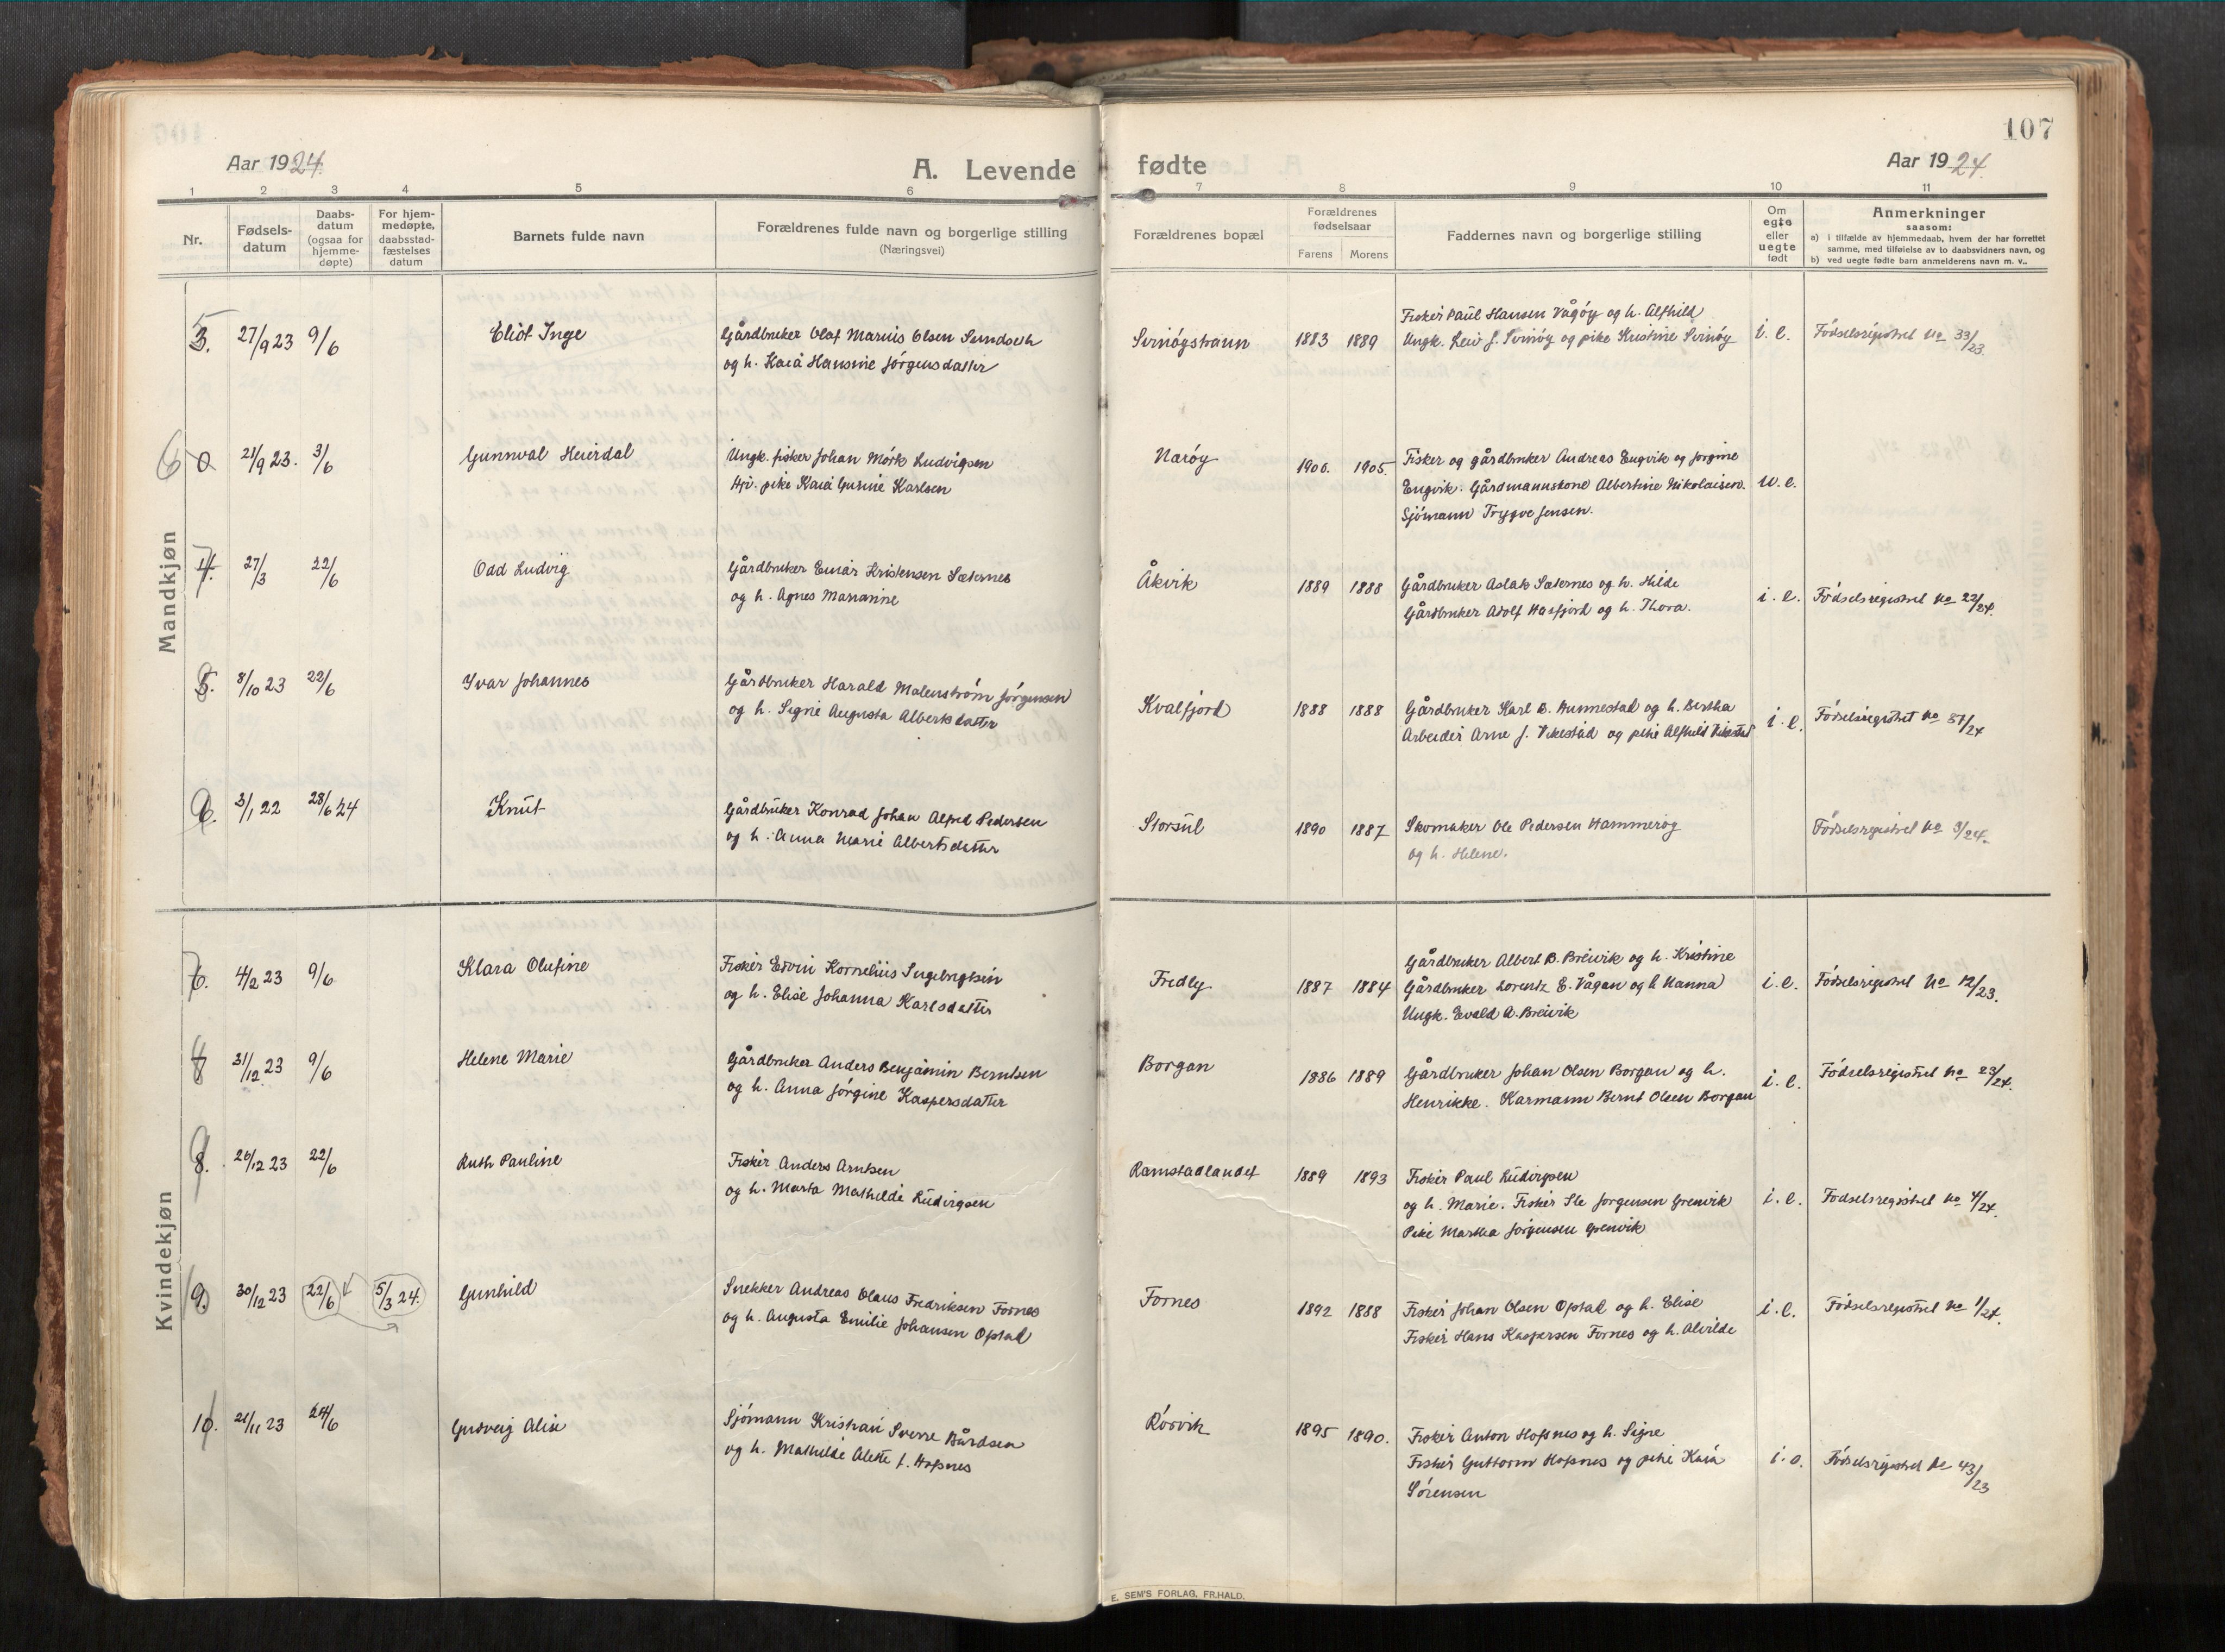 107
Aar 1924.
A. Levende
fødte
Aar 1924.
1 2 3 4 5 6 7 8 9 10 11
Nr.
Fødsels-
datum
Daabs-
datum
(ogsaa for
hjemme-
døpte)
For hjem-
medøpte,
daabsstad-
fæstelses
datum
Barnets fulde navn
Forældrenes fulde navn og borgerlige stilling
(Næringsvei)
Forældrenes bopæl
Forældrenes
fødselsaar
Farens Morens
Faddernes navn og borgerlige stilling
Om
egte
eller
uegte
født
Anmerkninger
saasom:
a) i tilfælde av hjemmedaab, hvem der har forrettet
samme, med tilføielse av to daabsvidners navn, og
b) ved uegte fødte barn anmelderens navn m. v..
Mandkjøn
3. 27/9 23 9/6 Eliot Inge
Gårdbruker Olaf Marius Olsen Sundseth
og h. Kaia Hansine Jörgensdatter
Svinöystraun 1883 1889
Fisker Paul Hansen Vågöy og h. Alfhild
Ungk. Leiv J. Svinöy og pike Kristine Svinöy
i. e. Födselsregistret No 33/23.
6 0 21/9 23. 3/6 Gunnval Heirdal
Ungk. fisker Johan Mörk Ludvigsen
pike Kaia Gusine Karlsen
Naröy 1906. 1905.
Fisker og gårdbruker Andreas Engvik og Jorgine
Engvik. Gårdmannskone Albertine Nikolaisen.
Sjömann Trygve Jensen.
u. e.
4. 27/3 22/6 Odd Ludvig
Gårdbruker Einar Kristensen Sæternes
og h. Agnes Marianne
Åkvik 1889 1888
Gårdbruker Aslak Sæternes og h. Hilde
Gårdbruker Adolf Hasfjord og h. Thora.
i. e. Födselsregistret No 22/24.
5. 8/10 23 22/6 Ivar Johannes
Gårdbruker Harald Malenström Jörgensen
og h. Signe Augusta Albertsdatter
Kvalfjord 1888 1888
Gårdbruker Karl B. Hunnestad og h. Bertha
Arbeider Arne J. Vikestad og pike Alfhild Vikestad
i. e. Födselsregistret No 37/24
6. 3/1 22 28/6 24 Knut
Gårdbruker Konrad Johan Alfred Pedersen
og h. Anna Marie Albertsdatter
Storsul 1890 1887
Skomaker Ole Pedersen Hammeröy
og h. Helene.
Födselsregistret No 3/24.
Kvindekjøn
6. 4/2 23 9/6 Klara Olufine
Fisker Edvin Kornelius Ingebrigtsen
og h. Elise Johanna Karlsdatter
Fredly 1887 1884
Gårdbruker Albert B. Breivik og h. Kristine
Gårdbruker Lorentz E. Vågan og h Hanna
Ungk. Evald A. Breivik
i. e. Födselsregistret No 12/23.
31/12 23 9/6 Helene Marie
Gårdbruker Anders Benjamin Berntsen
og h. Anna Jörgine Kaspersdatter
Borgan 1886 1889
Gårdbruker Johan Olsen Borgan og h.
Henrikke. Karmann Bernt Olsen Borgan
i. e. Födselsregistret No 23/24.
8. 26/12 23 22/6 Ruth Pauline
Fisker Anders Arntsen
og h. Marta Mathilde Ludvigsen
Ramstadlandet 1889 1893
Fisker Paul Ludvigsen
og h. Marie. Fisker Ole Jorgensen Grenvik
Pike Martha Jörgensen Grenvik
i. e. Fodselsregistret No 4/24.
9. 30/12 23 22/6 5/3 24. Gunhild
Snekker Andreas Olaus Fredriksen Fornes
og h. Augusta Emilie Johansen Opstad
Fornes 1892 1888
Fisker Johan Olsen Opstad og h. Elise
Fisker Hans Kaspersen Fornes og h. Alvilde
i. e. Födselsregistret No 1/24.
10. 21/11 23 24/6 Gudveig Alise
Sjömann Kristian Sverre Bårdsen
og h. Mathilde Alette f. Hofsnes
Rörvik 1895 1890.
Fisker Anton Hofsnes og h. Signe
Fisker Guttorm Hofsnes og pike Kaia
Sörensen
i. e. Födselsregistret No 43/23
E. SEM'S FORLAG, FR.HALD.